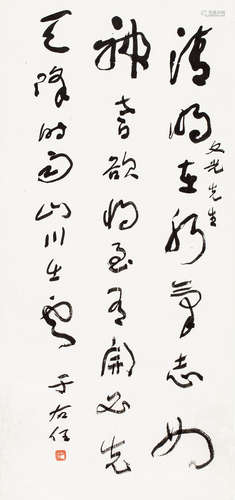 清明在躬气志如
文光先生
神耆欲将至有开必先
天降时雨山川出云
于右任